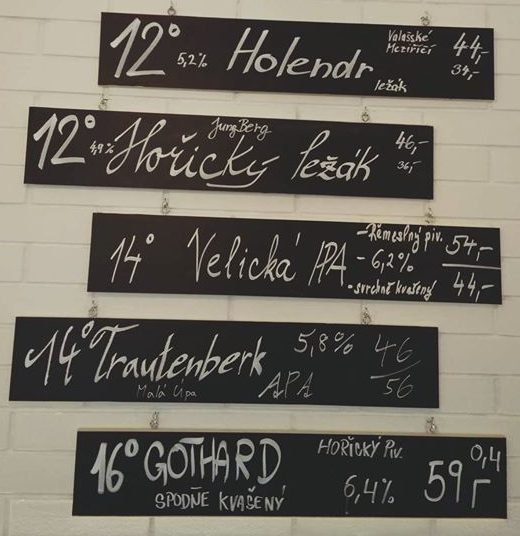 12° 5,2% Holendr Valašské Meziříčí 44,-
34,-
ležák
Jung Berg
12° 4,9% Hořický ležák 46,-
36,-
14° Velická APA - Řemeslný piv. 54,-
- 6,2%
• svrchně kvašený 44,-
14° Trautenberk 5,8% 46
Malá Úpa APA 56
16° GOTHARD HOŘICKÝ PIV. 0,4
SPODNĚ KVAŠENÝ 6,4% 59,-